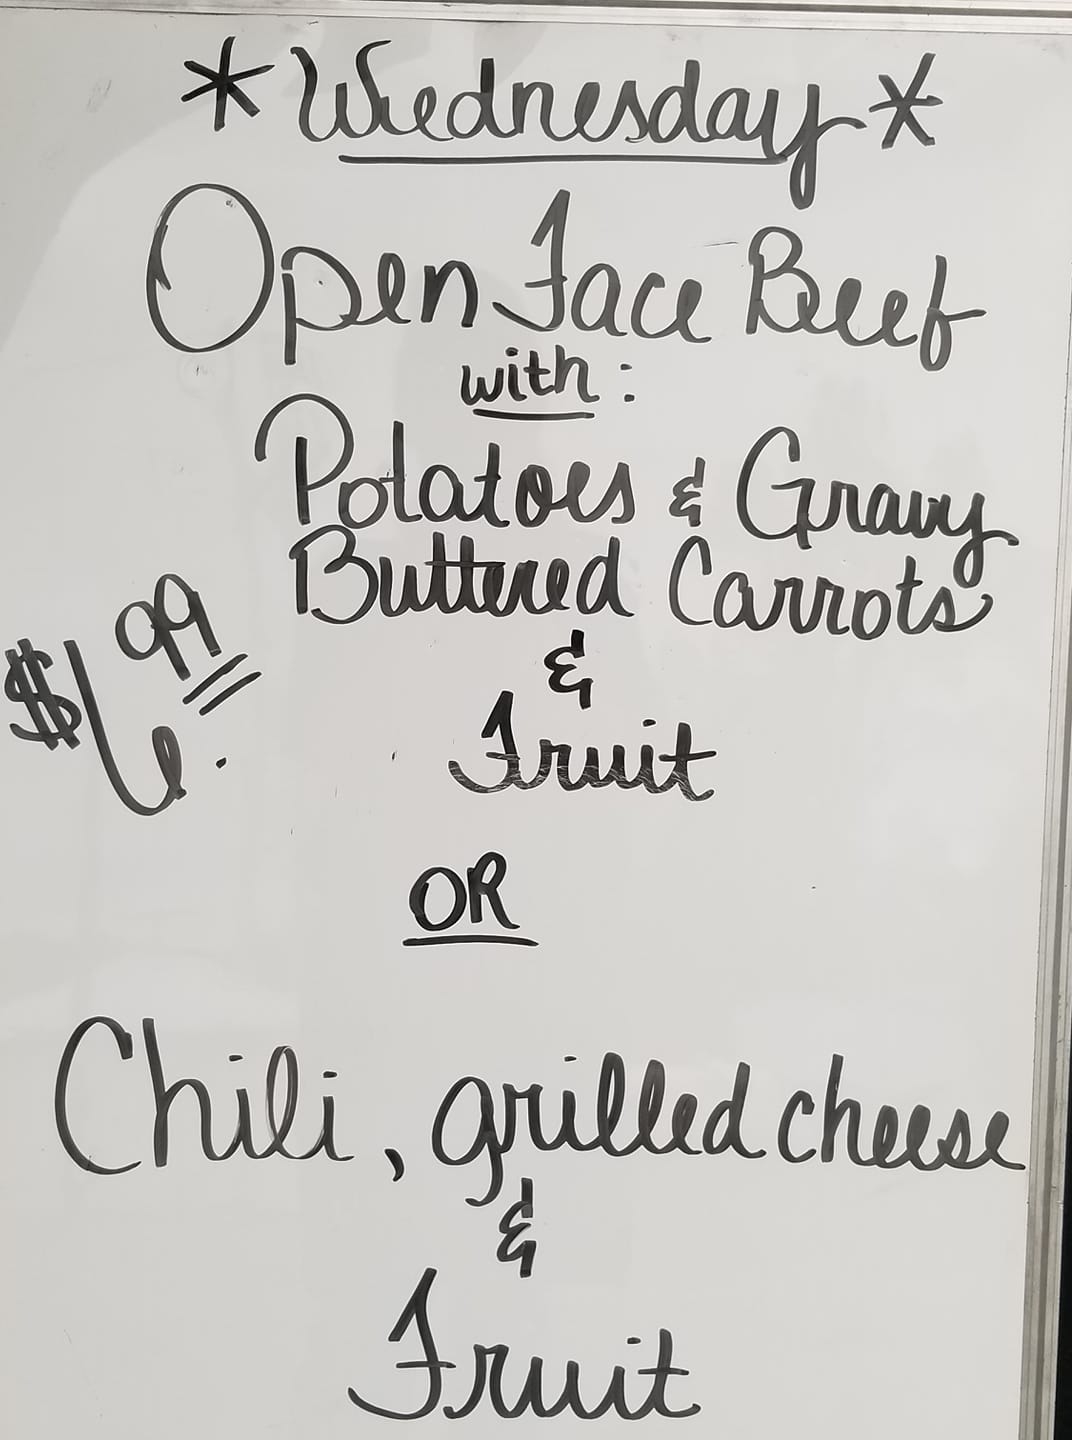 *Wednesday*
Open Face Beef
with:
Potatoes & Gravy
Buttered Carrots
&
$6.99
Fruit
OR
Chili, grilled cheese
&
Fruit